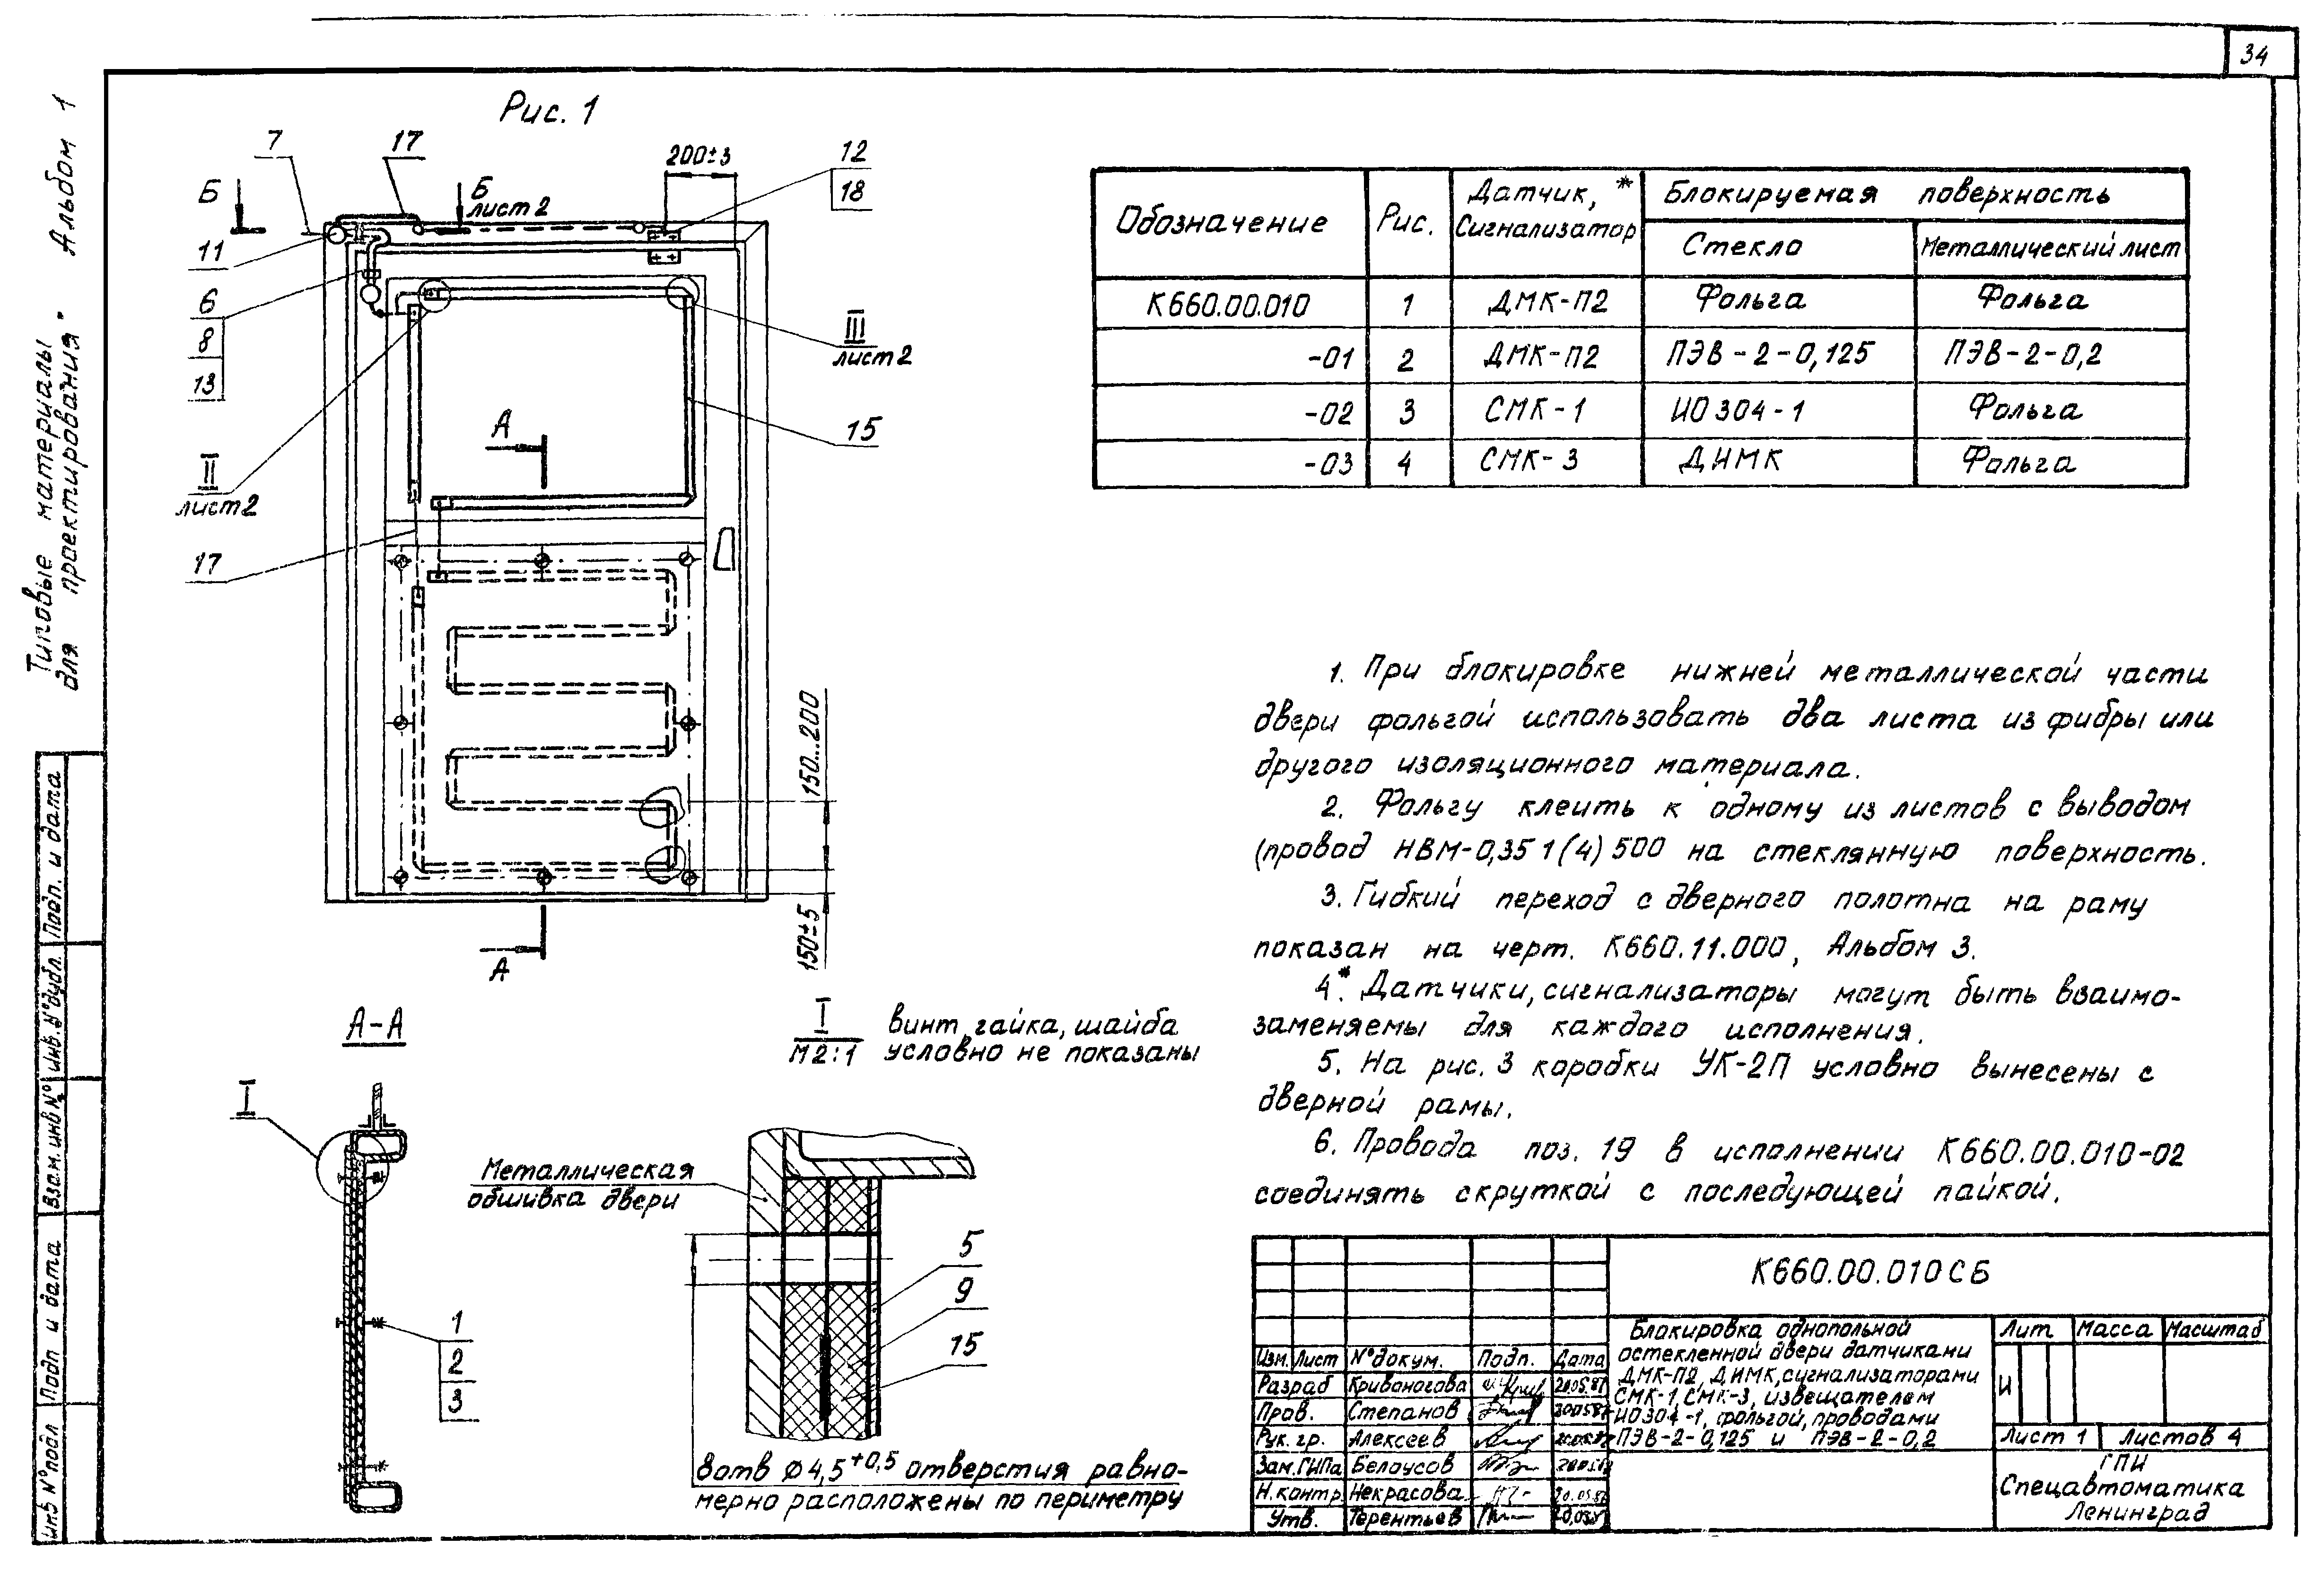 34
Типовые материалы
для проектирования"
Альбом 1
Рис. 1
7
17
200±3
12
18
Б
Б
лист 2
11
6
8
13
III
лист 2
15
А
II
лист 2
17
150...200
150±5
А
А-А
I
I
М 2:1
винт, гайка, шайба
условно не показаны
1
2
3
Металлическая
обшивка двери
5
9
15
8 отв ⌀4,5+0,5 отверстия равно-
мерно расположены по периметру
Обозначение
Рис.
Датчик, *
Сигнализатор
Блокируемая поверхность
Стекло
Металлический лист
К660.00.010 1 ДМК-П2 Фольга Фольга
-01 2 ДМК-П2 ПЭВ-2-0,125 ПЭВ-2-0,2
-02 3 СМК-1 ИО 304-1 Фольга
-03 4 СМК-3 ДИМК Фольга
1. При блокировке нижней металлической части
двери фольгой использовать два листа из фибры или
другого изоляционного материала.
2. Фольгу клеить к одному из листов с выводом
(провод НВМ-0,35 1(4) 500 на стеклянную поверхность.
3. Гибкий переход с дверного полотна на раму
показан на черт. К660.11.000, Альбом 3.
4*. Датчики, сигнализаторы могут быть взаимо-
заменяемы для каждого исполнения.
5. На рис. 3 коробки УК-2П условно вынесены с
дверной рамы.
6. Провода поз. 19 в исполнении К660.00.010-02
соединять скруткой с последующей пайкой.
К660.00.010 СБ
Блокировка однопольной
остекленной двери датчиками
ДМК-П2, ДИМК, сигнализаторами
СМК-1, СМК-3, извещателем
ИО304-1, фольгой, проводами
ПЭВ-2-0,125 и ПЭВ-2-0,2
Лит Масса Масштаб
И
Лист 1 Листов 4
ГПИ
Спецавтоматика
Ленинград
Изм. Лист N° докум. Подп. Дата
Разраб Кривоногова 20.05.87
Пров. Степанов 20.05.87
Рук. гр. Алексеев
Зам.ГИПа Белоусов
Н.контр. Некрасова
Утв. Терентьев
Подп. и дата
Инв. N° дубл.
Взам. инв N°
Подп и дата
Инв N° подл